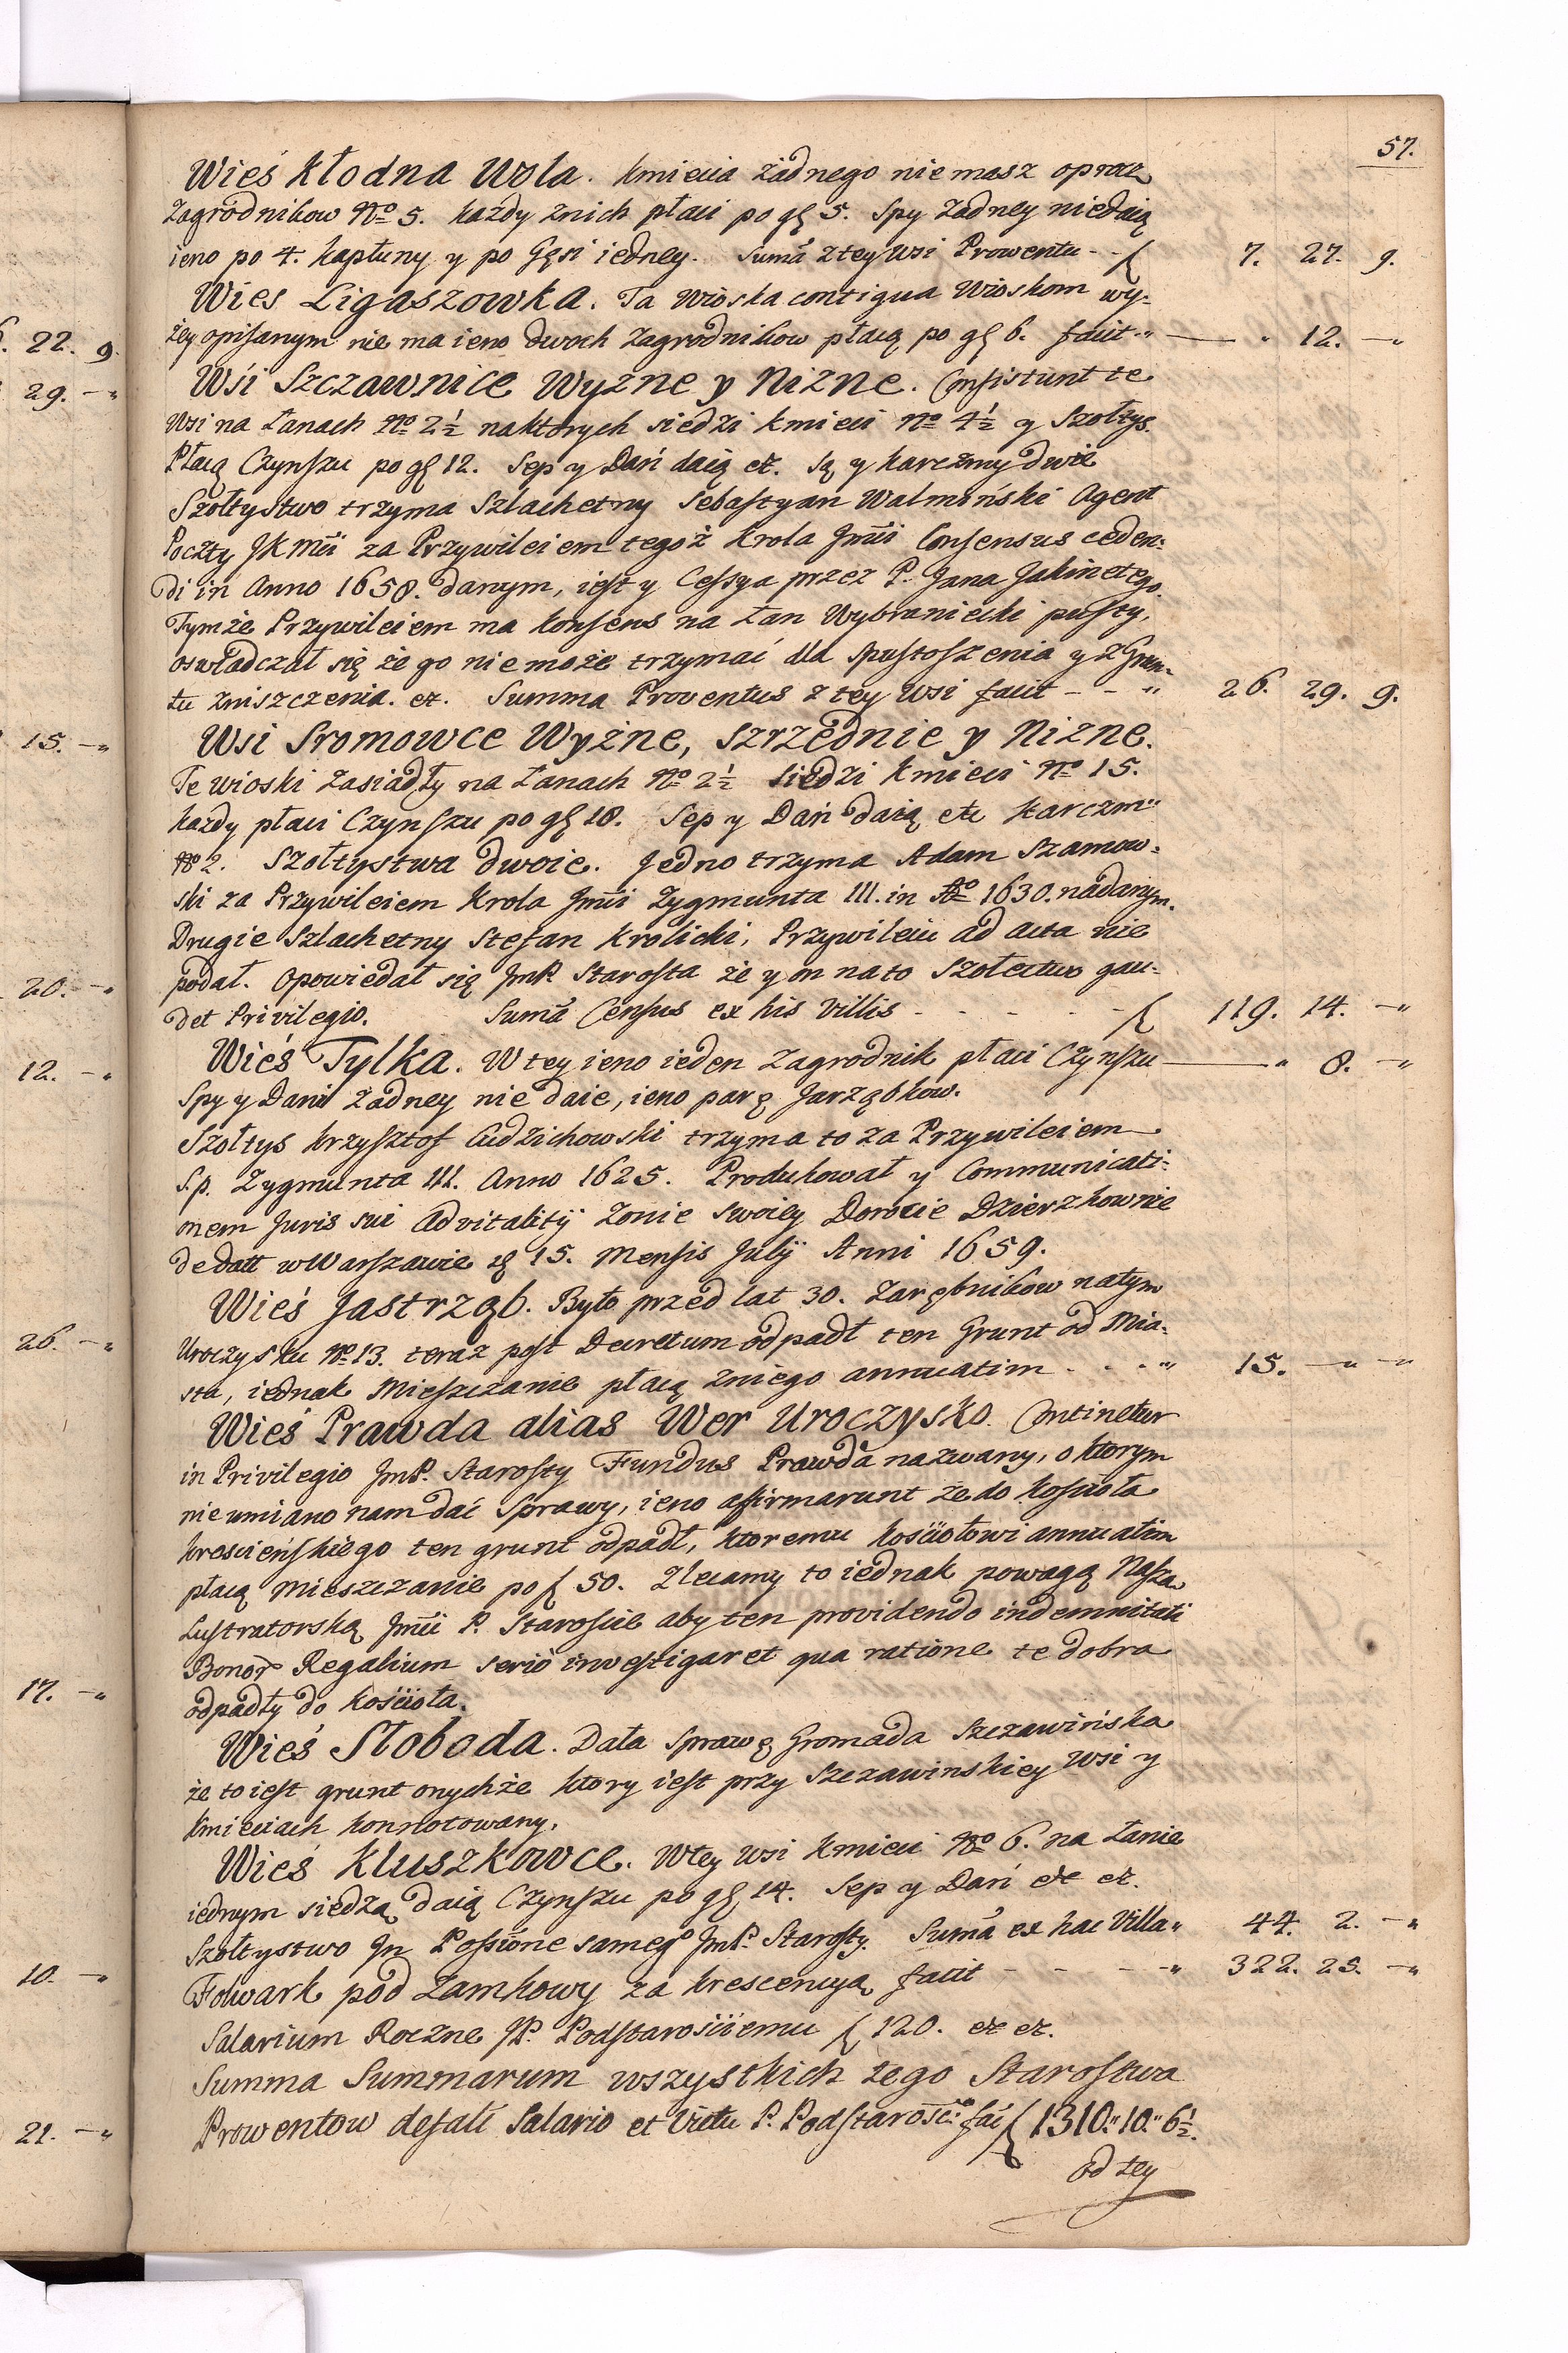 57.
Wieś Kłodna Wola. Kmiecia żadnego niemasz oprocz
Zagrodnikow No 5. każdy znich płaci po gł 5. Spy żadney niedaią
ieno po 4. kapłuny y po Gęsi iedney. Suma z tey Wsi Prowentu -- f 7. 27. 9.
Wies Ligaszowka. Ta Wioska contigua Wioskom wy-
żey opisanym nie ma ieno dwoch Zagrodnikow płacą po gł 6. facit " — " 12. -"
Wsi Szczawnice Wyżne y Niżne. Consistunt te
Wsi na Łanach No 2½ naktorych siedzi kmieci No 4½ y Szołtys.
Płacą Czynszu po gł 12. Sep y Dań daią et. Są y karczmy dwie
Szołtystwo trzyma Szlachetny Sebastyan Walmiński Agent
Poczty JK Mći za Przywileiem tegoż Krola Jmći Consensus ceden-
di in Anno 1658. danym, iest y Cessya przez P. Jana Jakinetego
Tymże Przywileiem ma konsens na Łan Wybraniecki pusty,
oswładczał się że go niemoże trzymać dla spustoszenia y z Grun-
tu zniszczenia. et. Summa Proventus z tey Wsi facit - - " 26. 29. 9.
Wsi Sromowce Wyżne, Szrzednie y Niżne.
Te wioski zasiadły na Łanach No 2½ siedzi Kmieci No 15.
każdy płaci Czynszu po gł 18. Sep y Dań daią etc Karczm"
No 2. Szołtystwa dwoie. Jedno trzyma Adam Szamow-
ski za Przywileiem Krola Jmći Zygmunta III. in Ao 1630. nadanym.
Drugie Szlachetny Stefan Krolicki, Przywileiu ad acta nie
podał. Opowiedał się JmP. Starosta że y on na to Szołectwo gau-
det Privilegio. Suma Census ex his Villis - - - - - f 119. 14. -"
Wieś Tylka. W tey ieno ieden Zagrodnik płaci Czynszu — " 8. -"
Spy y Dani żadney nie daie, ieno parę Jarząbkow.
Szołtys Krzysztof Cudzichowski trzyma to za Przywileiem
S.p. Zygmunta III. Anno 1625. Produkował y Communicati-
onem Juris sui Advitalitÿ Zonie swoiey Dorocie Dzierzkownie
de datt w Warszawie d 15. Mensis Julÿ Anni 1659.
Wieś Jastrząb. Było przed lat 30. Zarębnikow natym
Uroczysku No 13. teraz post Decretum odpadł ten Grunt od Mia-
sta, iednak Mieszczanie płacą zniego annuatim - - - " 15. -" -"
Wieś Prawda alias Wer Uroczysko. Continetur
in Privilegio JmP. Starosty Fundus Prawda nazwany, o ktorym
nie umiano nam dać Sprawy, ieno affirmarunt że do Kościoła
kreścieńskiego ten grunt odpadł, ktoremu kościołowi annuatim
płacą Mieszczanie po f 50. Zlecamy to iednak powagą Naszą
Lustratorską Jmći P. Starosćie aby ten providendo indemnitati
Bonor Regalium serio investigaret qua ratione te dobra
odpadły do kościoła.
Wieś Słoboda. Dała Sprawę Gromada Szczawińska
że to iest grunt onychże ktory iest przy Szczawinskiey Wsi y
Kmieciach konnotowany.
Wieś Kluszkowce. Wtey Wsi Kmieci No 6. na Łanie
iednym siedzą daią Czynszu po gł 14. Sep y Dań etc et.
Szołtystwo In Possione samego JmP. Starosty. Suma ex hac Villa " 44. 2. -"
Folwark pod Zamkowy za krescencyą facit - - - - " 322. 25. -"
Salarium Roczne JP. Podstarościemu f 120. et et.
Summa Summarum wszystkich tego Starostwa
Prowentow defalć Salario et Victu P. Podstarość: fać f 1310." 10." 6½.
od tey
22. 9.
29. -"
15. -"
20. -"
12. -"
26. -"
17. -"
10. -"
21. -"